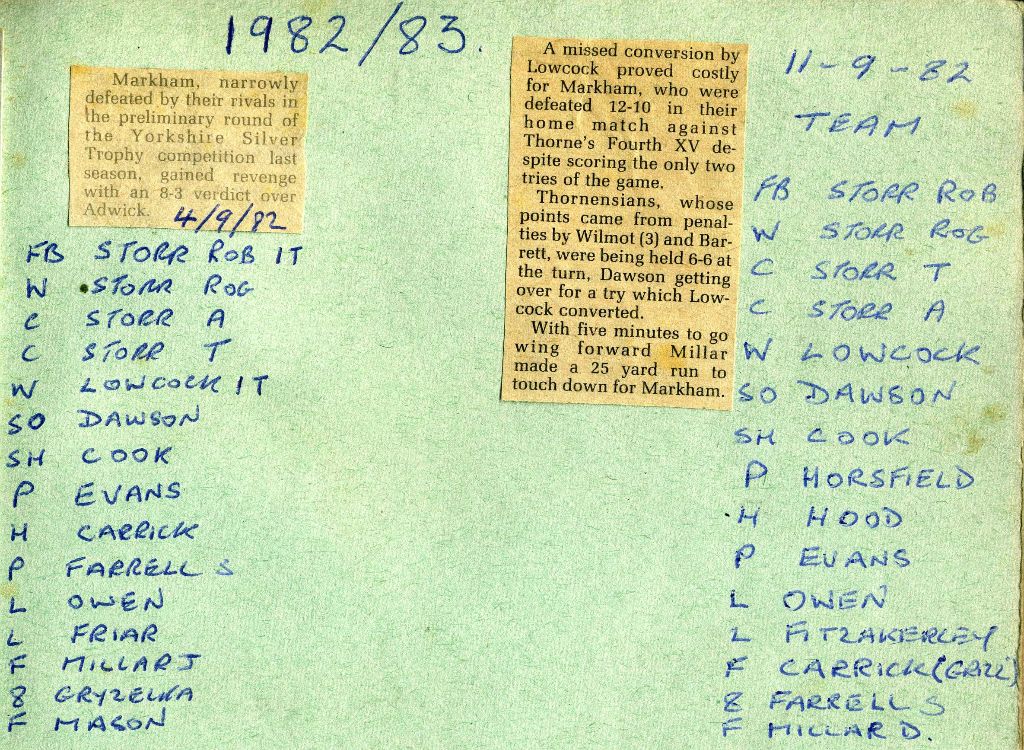 1982/83.
Markham, narrowly
defeated by their rivals in
the preliminary round of
the Yorkshire Silver
Trophy competition last
season, gained revenge
with an 8-3 verdict over
Adwick. 4/9/82
FB STORR ROB 1T
W STORR ROG
C STORR A
C STORR T
W LOWCOCK 1T
SO DAWSON
SH COOK
P EVANS
H CARRICK
P FARRELL S
L OWEN
L FRIAR
F MILLAR J
8 GRYZELKA
F MASON
A missed conversion by
Lowcock proved costly
for Markham, who were
defeated 12-10 in their
home match against
Thorne's Fourth XV de-
spite scoring the only two
tries of the game.
Thornensians, whose
points came from penal-
ties by Wilmot (3) and Bar-
rett, were being held 6-6 at
the turn, Dawson getting
over for a try which Low-
cock converted.
With five minutes to go
wing forward Millar
made a 25 yard run to
touch down for Markham.
11-9-82
TEAM
FB STORR ROB
W STORR ROG
C STORR T
C STORR A
W LOWCOCK
SO DAWSON
SH COOK
P HORSFIELD
H HOOD
P EVANS
L OWEN
L FITZAKERLEY
F CARRICK
8 FARRELL S
F MILLAR D.